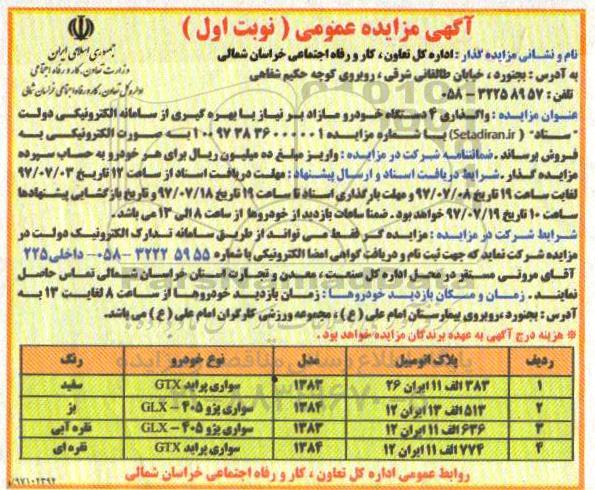 آگهی مزایده عمومی ( نوبت اول )
جمهوری اسلامی ایران
وزارت تعاون، کار و رفاه اجتماعی
اداره کل تعاون، کار و رفاه اجتماعی خراسان شمالی
نام و نشانی مزایده گذار : اداره کل تعاون ، کار و رفاه اجتماعی خراسان شمالی
به آدرس : بجنورد ، خیابان طالقانی شرقی ، روبروی کوچه حکیم شفاهی
تلفن : ۳۲۲۵۸۹۵۷ - ۰۵۸
عنوان مزایده : واگذاری ۴ دستگاه خودرو مازاد بر نیاز با بهره گیری از سامانه الکترونیکی دولت
" ستاد" ( Setadiran.ir) با شماره مزایده ۱۰۰۹۷۳۸۳۶۰۰۰۰۰۱ به صورت الکترونیکی به
فروش برساند . ضمانتنامه شرکت در مزایده : واریز مبلغ ده میلیون ریال برای هر خودرو به حساب سپرده
مزایده گذار . شرایط دریافت اسناد و ارسال پیشنهاد : مهلت دریافت اسناد از ساعت ۱۲ تاریخ ۹۷/۰۷/۰۳
لغایت ساعت ۱۹ تاریخ ۹۷/۰۷/۰۸ و مهلت بارگذاری اسناد تا ساعت ۱۹ تاریخ ۹۷/۰۷/۱۸ و تاریخ بازگشایی پیشنهادها
ساعت ۱۰ تاریخ ۹۷/۰۷/۱۹ خواهد بود . ضمنا ساعات بازدید از خودروها از ساعت ۸ الی ۱۳ می باشد .
شرایط شرکت در مزایده : مزایده گر فقط می تواند از طریق سامانه تدارک الکترونیک دولت در
مزایده شرکت نماید که جهت ثبت نام و دریافت گواهی امضا الکترونیکی با شماره ۳۲۲۲۵۹۵۵ -۰۵۸- داخلی ۲۲۵
آقای مروتی مستقر در محل اداره کل صنعت ، معدن و تجارت استان خراسان شمالی تماس حاصل
نمایند . زمان و مکان بازدید خودروها : زمان بازدید خودروها از ساعت ۸ لغایت ۱۳ به
آدرس : بجنورد ، روبروی بیمارستان امام علی ( ع ) ، مجموعه ورزشی کارگران امام علی ( ع ) می باشد.
* هزینه درج آگهی به عهده برندگان مزایده خواهد بود .
ردیف پلاک اتومبیل نوع خودرو مدل رنگ
۱ ۳۸۳ الف ۱۱ ایران ۲۶ سواری پراید GTX ۱۳۸۳ سفید
۲ ۵۱۳ الف ۱۳ ایران ۱۲ سواری پژو ۴۰۵ - GLX ۱۳۸۴ بژ
۳ ۶۳۶ الف ۱۱ ایران ۱۲ سواری پژو ۴۰۵ - GLX ۱۳۸۳ نقره آبی
۴ ۷۷۴ الف ۱۱ ایران ۱۲ سواری پراید GTX ۱۳۸۴ نقره ای
روابط عمومی اداره کل تعاون ، کار و رفاه اجتماعی خراسان شمالی
۹۷۱۰۲۳۹۲/